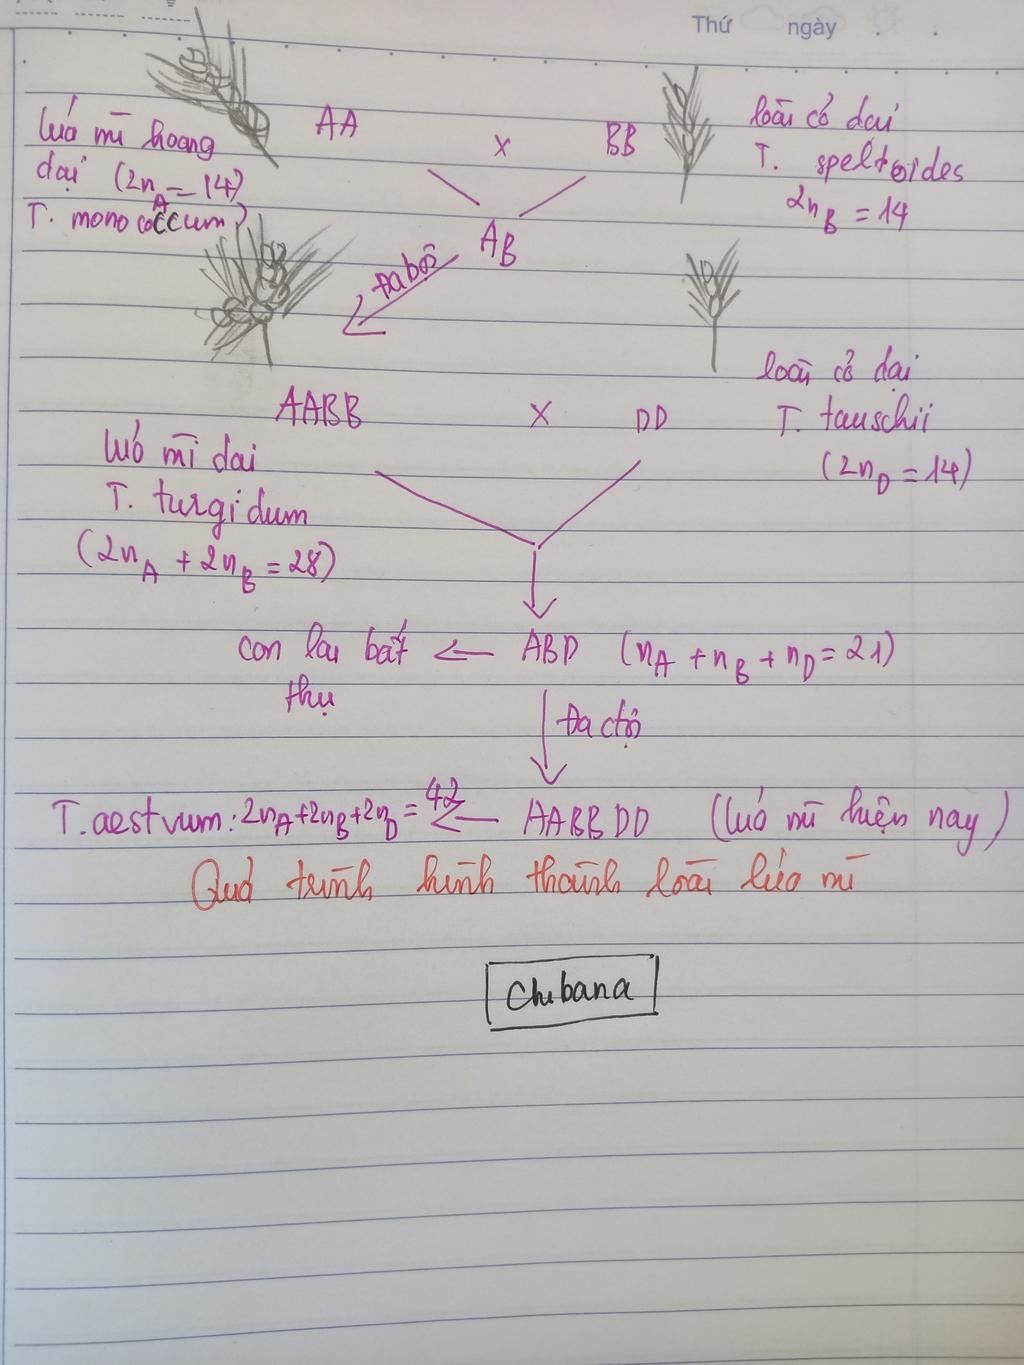 Thứ ngày
AA x BB
lúa mì hoang
dại (2nA = 14)
T. monococcum
loài cỏ dại
T. speltoides
2nB = 14
AB
Đa bội
AABB x DD
lúa mì dại
T. turgidum
(2nA + 2nB = 28)
loài cỏ dại
T. tauschii
(2nD = 14)
con lai bất thụ ← ABD (nA + nB + nD = 21)
Đa bội
T. aestvum: 2nA+2nB+2nD = 42 ← AABBDD (lúa mì hiện nay)
Quá trình hình thành loài lúa mì
Chibana